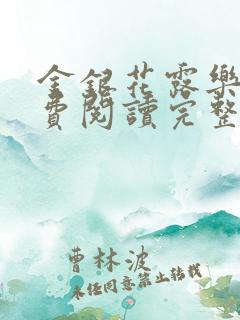 金銀花露樂
費閱讀完整
曹林波
未经同意禁止转载